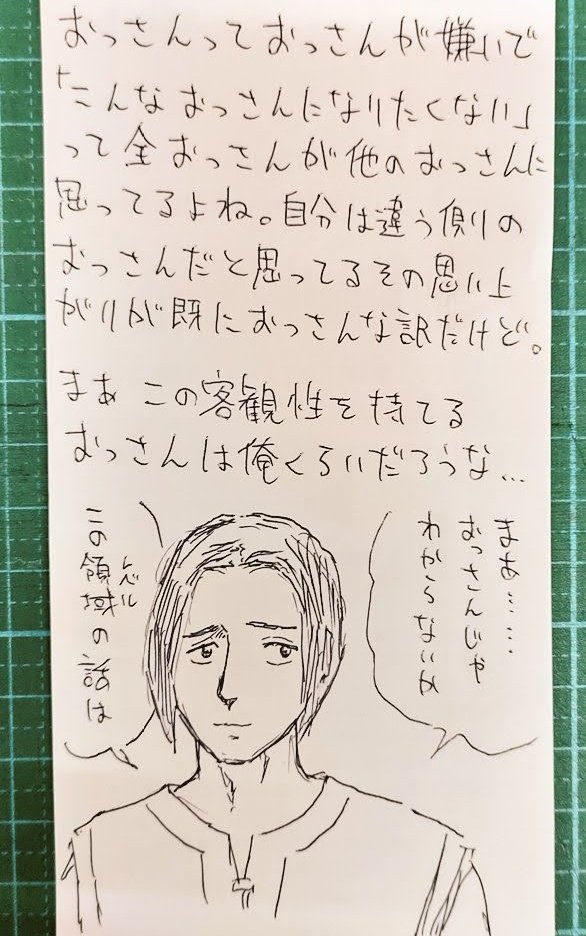 おっさんっておっさんが嫌いで
「こんなおっさんになりたくない」
って全おっさんが他のおっさんに
思ってるよね。自分は違う側りの
おっさんだと思ってるその思い上
がりが既におっさんな訳だけど。
まあ この客観性を持てる
おっさんは俺くらいだろうな…
まあ……
おっさんじゃ
わからないか
この領域の話は
レベル